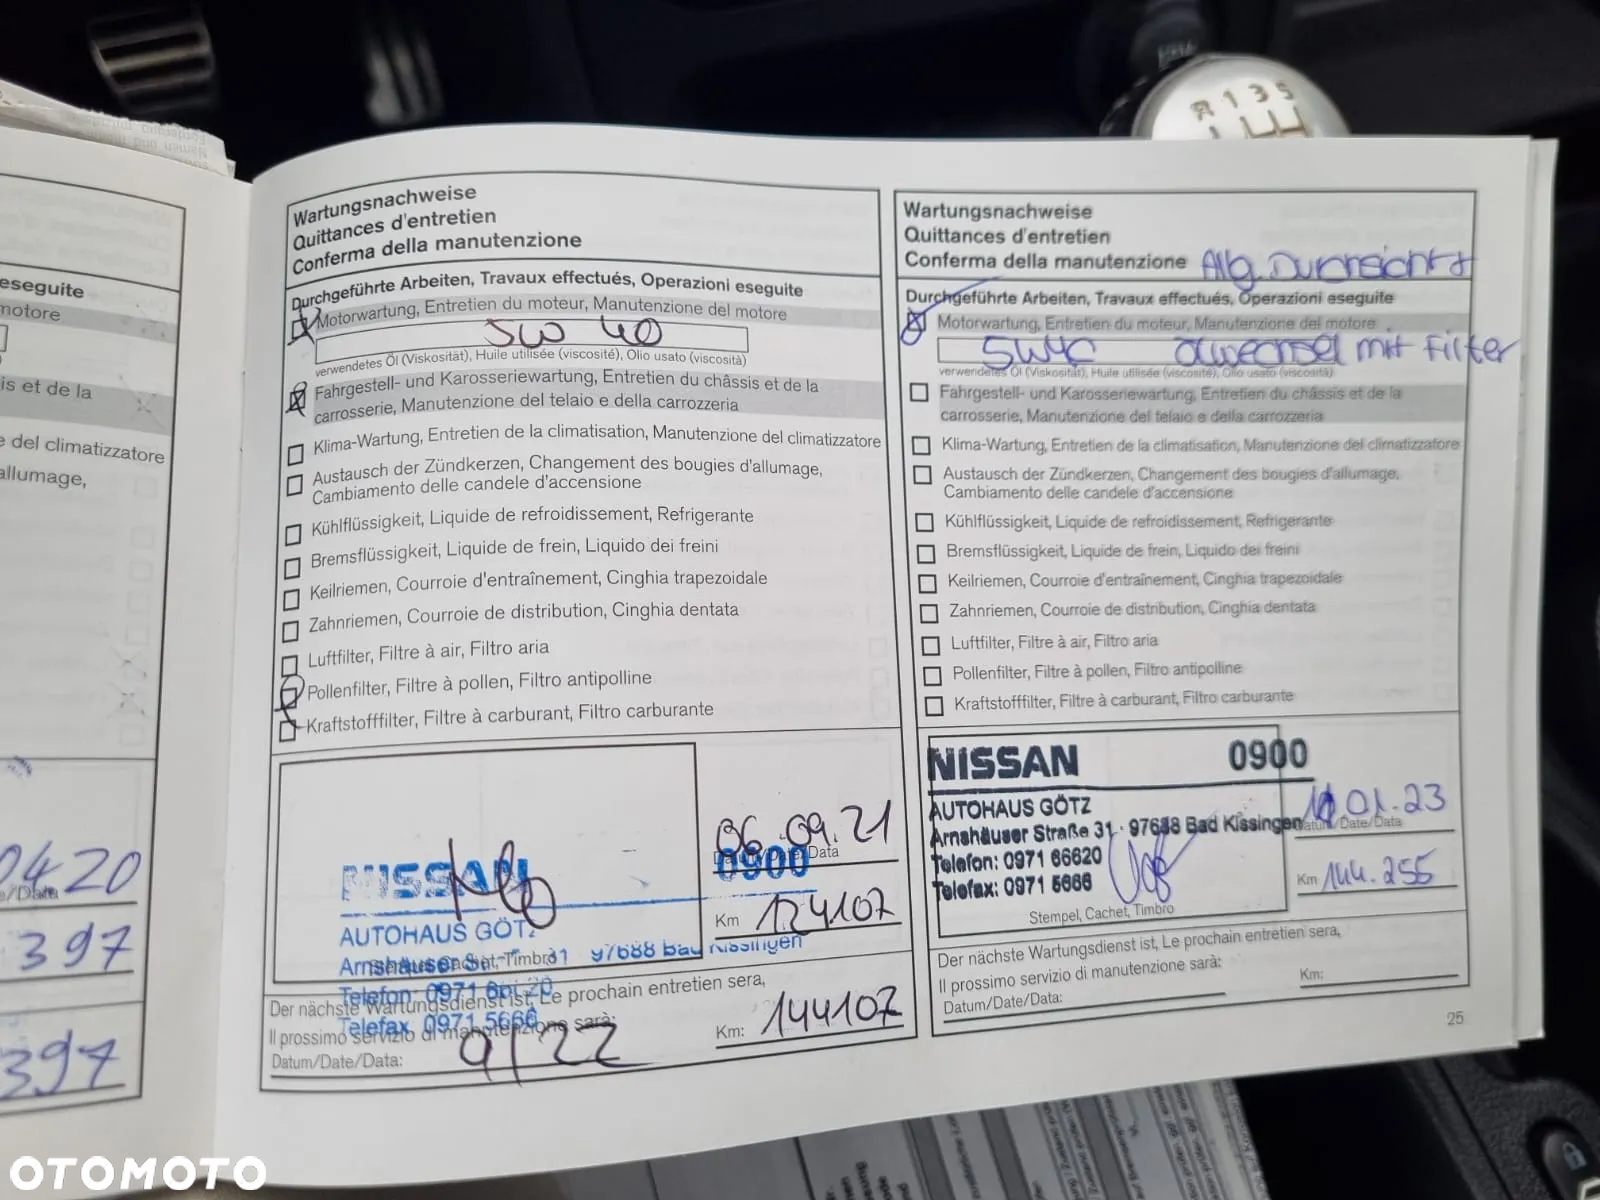 eseguite
motore
is et de la
e del climatizzatore
allumage,
0420
e/Data
397
397
Wartungsnachweise
Quittances d'entretien
Conferma della manutenzione
Durchgeführte Arbeiten, Travaux effectués, Operazioni eseguite
Motorwartung, Entretien du moteur, Manutenzione del motore
5W 40
verwendetes Öl (Viskosität), Huile utilisée (viscosité), Olio usato (viscosità)
Fahrgestell- und Karosseriewartung, Entretien du châssis et de la
carrosserie, Manutenzione del telaio e della carrozzeria
Klima-Wartung, Entretien de la climatisation, Manutenzione del climatizzatore
Austausch der Zündkerzen, Changement des bougies d'allumage,
Cambiamento delle candele d'accensione
Kühlflüssigkeit, Liquide de refroidissement, Refrigerante
Bremsflüssigkeit, Liquide de frein, Liquido dei freini
Keilriemen, Courroie d'entraînement, Cinghia trapezoidale
Zahnriemen, Courroie de distribution, Cinghia dentata
Luftfilter, Filtre à air, Filtro aria
Pollenfilter, Filtre à pollen, Filtro antipolline
Kraftstofffilter, Filtre à carburant, Filtro carburante
06.09.21
Datum/Date/Data
NISSAN 0900
Km 124107
AUTOHAUS GÖTZ
Arnshäuser 31 97688 Bad Kissingen
Cachet, Timbro
Telefon: 0971 66620
Der nächste Wartungsdienst ist, Le prochain entretien sera,
Telefax 0971 5666
Il prossimo servizio di manutenzione sarà:
Datum/Date/Data: 9/22
Km: 144107
Wartungsnachweise
Quittances d'entretien
Conferma della manutenzione Allg. Durchsicht
Durchgeführte Arbeiten, Travaux effectués, Operazioni eseguite
Motorwartung, Entretien du moteur, Manutenzione del motore
5W40 Ölwechsel mit Filter
verwendetes Öl (Viskosität), Huile utilisée (viscosité), Olio usato (viscosità)
Fahrgestell- und Karosseriewartung, Entretien du châssis et de la
carrosserie, Manutenzione del telaio e della carrozzeria
Klima-Wartung, Entretien de la climatisation, Manutenzione del climatizzatore
Austausch der Zündkerzen, Changement des bougies d'allumage,
Cambiamento delle candele d'accensione
Kühlflüssigkeit, Liquide de refroidissement, Refrigerante
Bremsflüssigkeit, Liquide de frein, Liquido dei freini
Keilriemen, Courroie d'entraînement, Cinghia trapezoidale
Zahnriemen, Courroie de distribution, Cinghia dentata
Luftfilter, Filtre à air, Filtro aria
Pollenfilter, Filtre à pollen, Filtro antipolline
Kraftstofffilter, Filtre à carburant, Filtro carburante
NISSAN 0900
AUTOHAUS GÖTZ
Arnshäuser Straße 31 · 97688 Bad Kissingen
Telefon: 0971 66620
Telefax: 0971 5666
Stempel, Cachet, Timbro
01.23
Datum/Date/Data
Km 144.255
Der nächste Wartungsdienst ist, Le prochain entretien sera,
Il prossimo servizio di manutenzione sarà:
Datum/Date/Data:
Km:
25
R 1 3 5
OTOMOTO